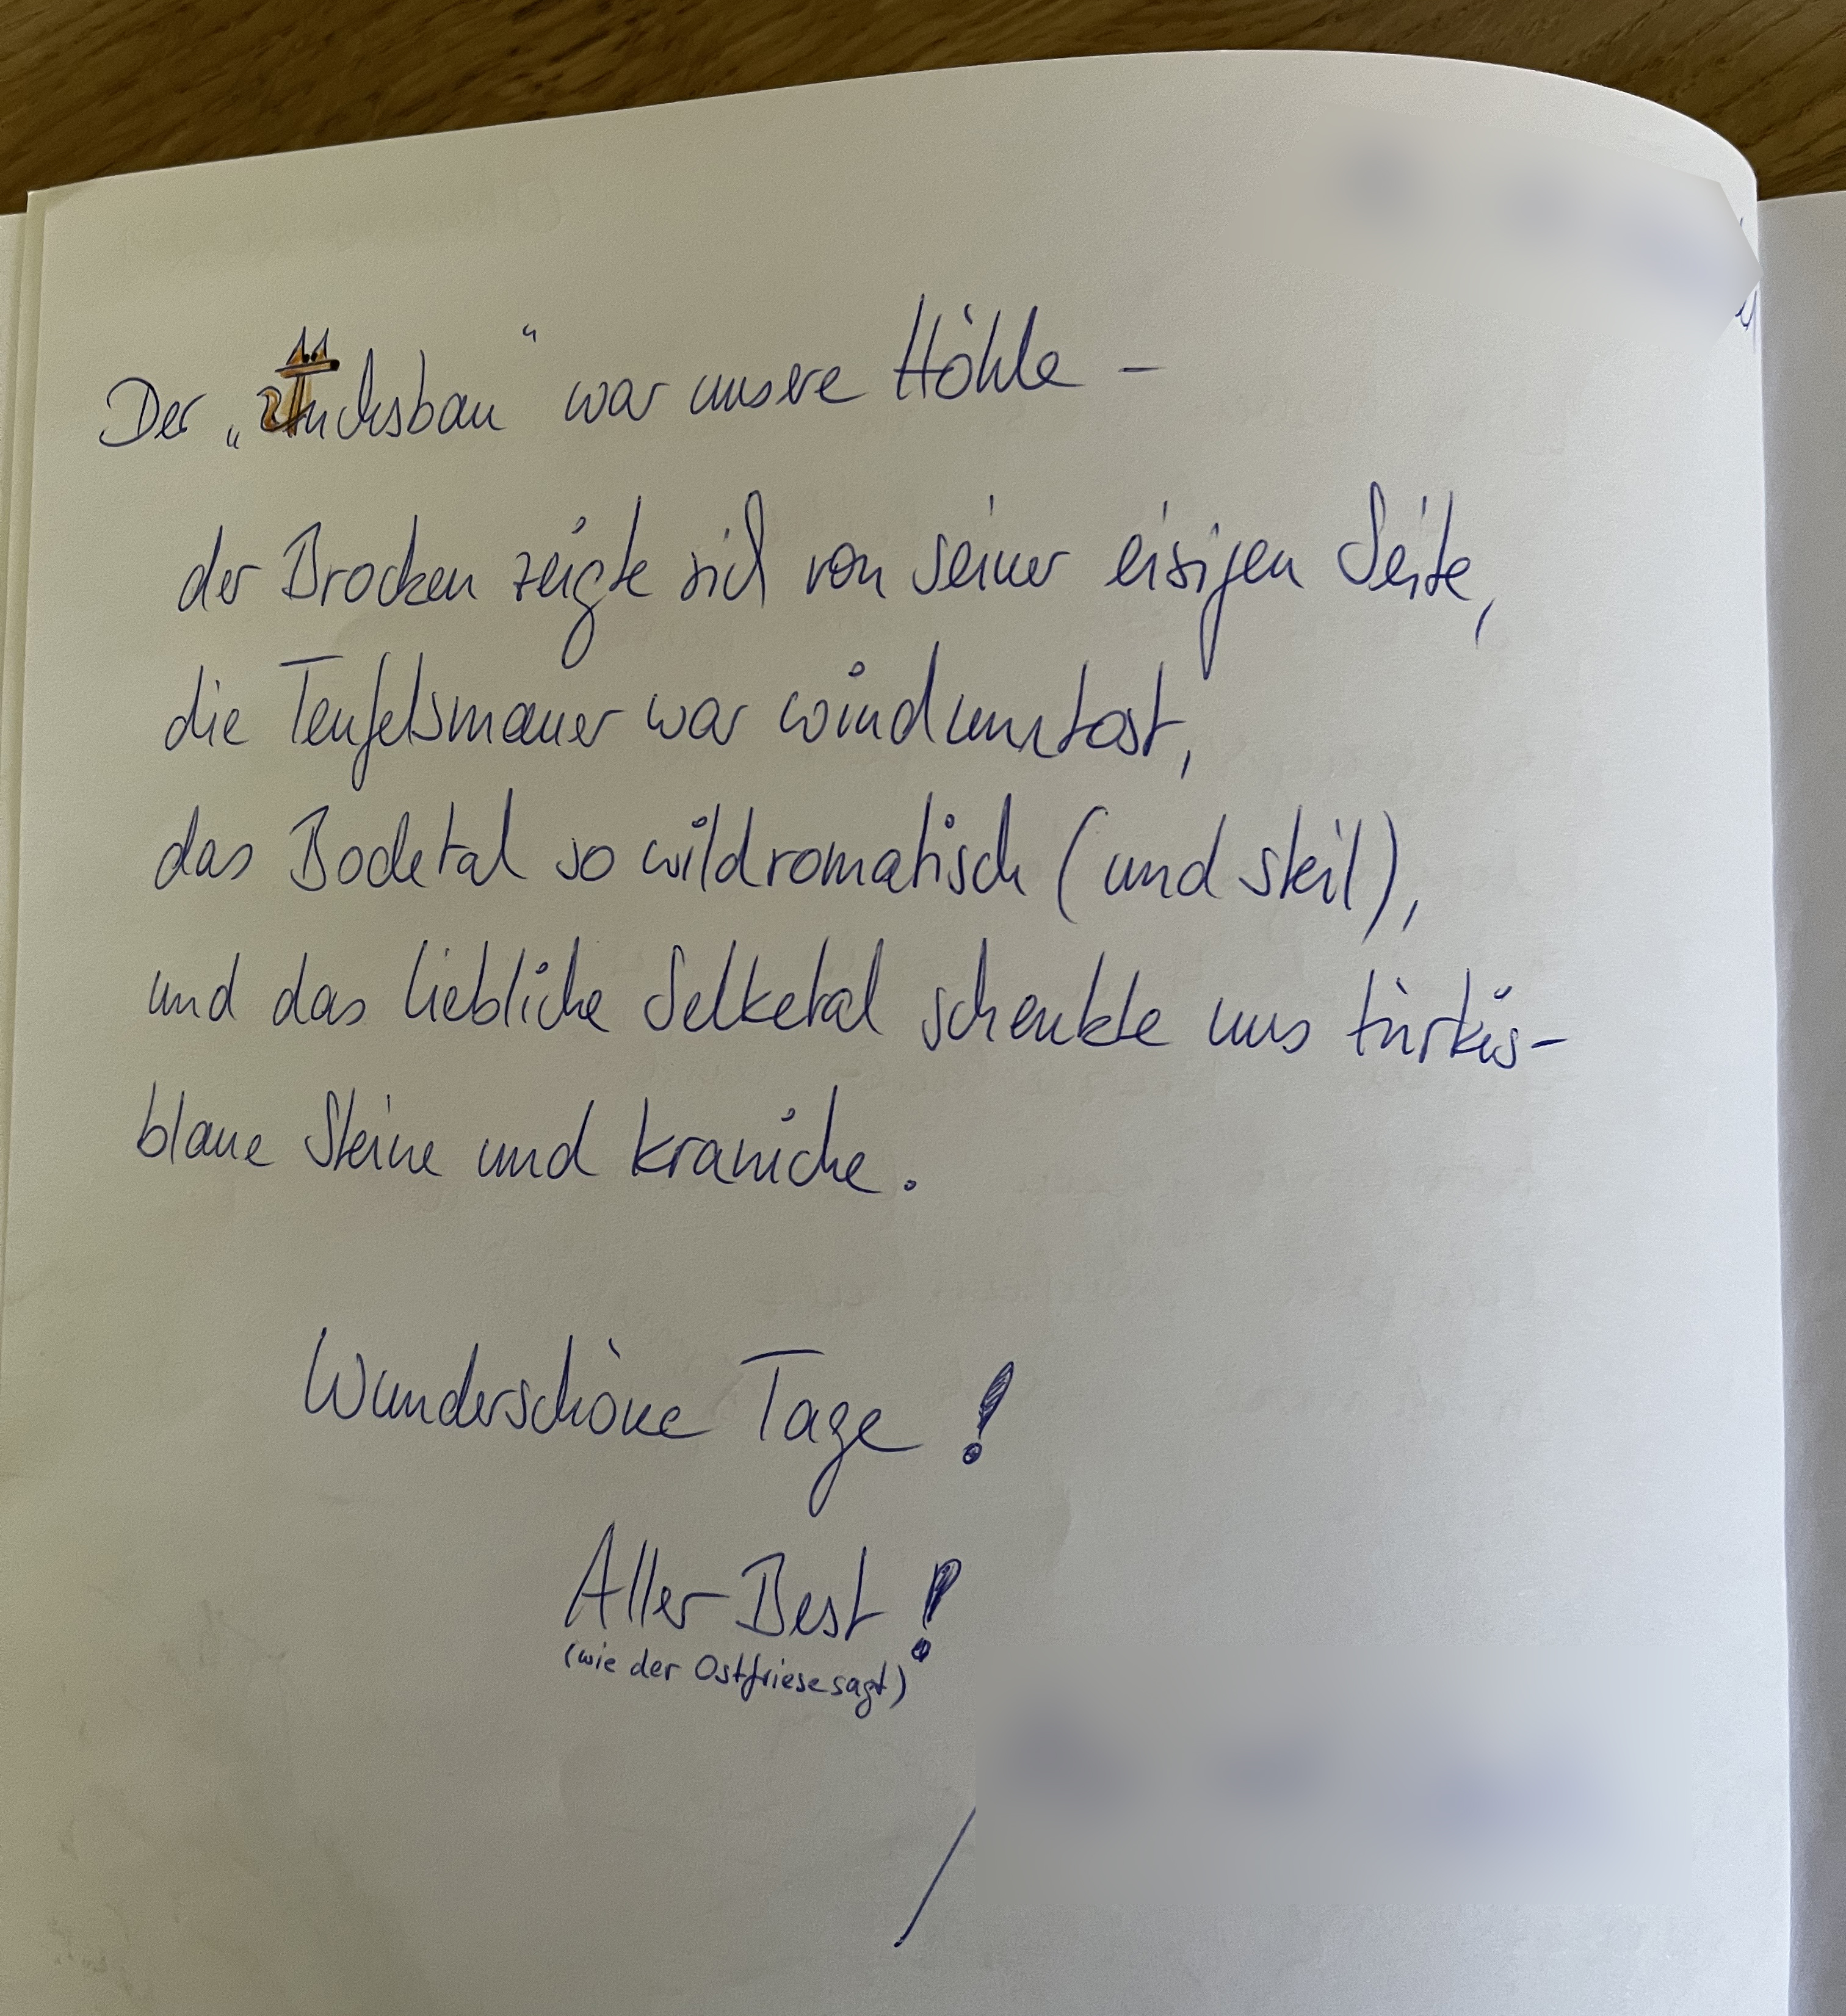 Der „Fuchsbau“ war unsere Höhle –
der Brocken zeigte sich von seiner eisigen Seite,
die Teufelsmauer war windumtost,
das Bodetal so wildromatisch (und steil),
und das liebliche Selketal schenkte uns türkis-
blaue Steine und Kraniche.
Wunderschöne Tage!
Aller-Best!
(wie der Ostfriese sagt)